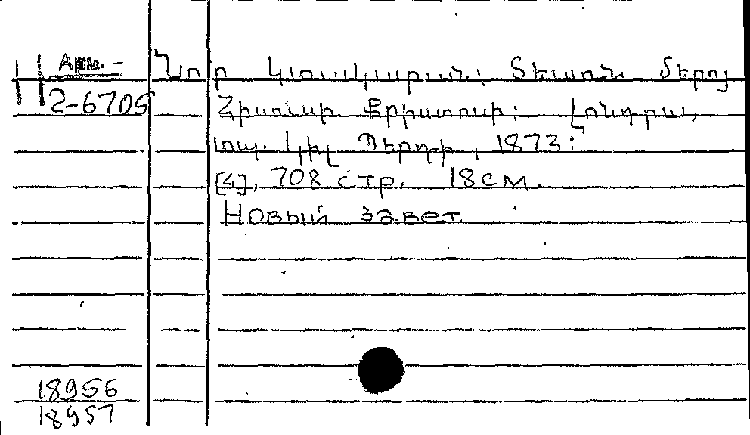 Арм. - Նոր Կտակարան. Տեառն մերոյ
2-6705 Յիսուսի Քրիստոսի: Լոնդրա,
տպ. 1873:
[4], 708 стр. 18 см.
Новый завет
18956
18957